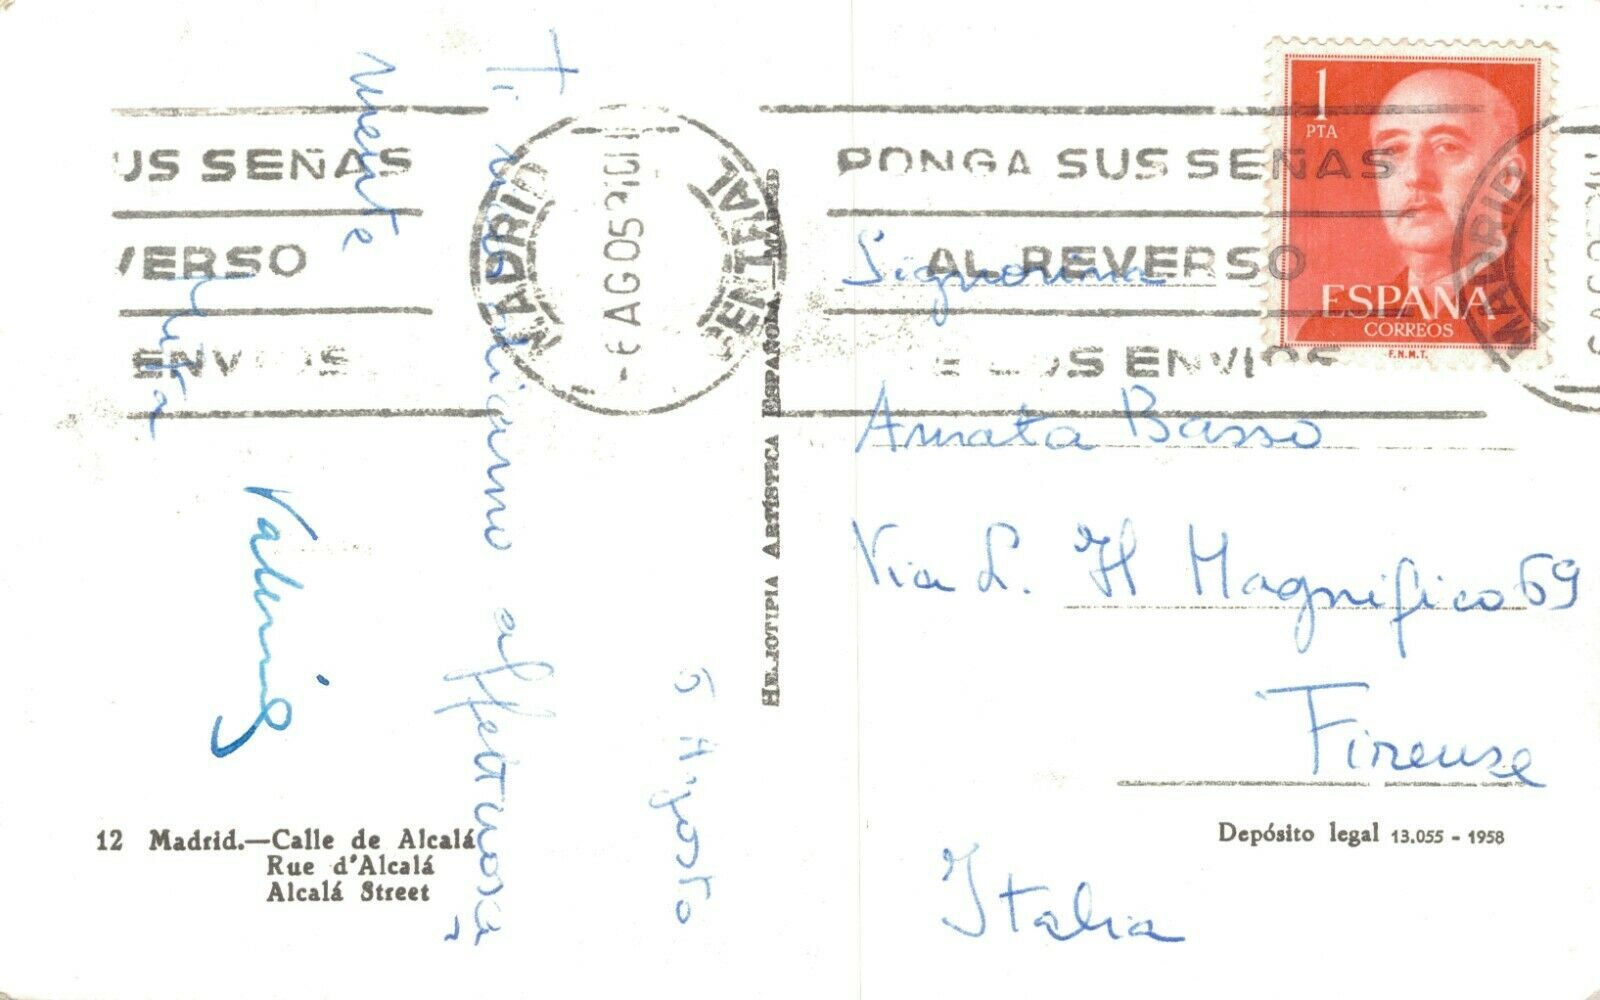 5 Agosto
Ti ricordiamo affettuosa-
mente
Valerio
1
PTA
ESPAÑA
CORREOS
F.N.M.T.
US SEÑAS
VERSO
ENVIOS
MADRID
CENTRAL
6 AGO
PONGA SUS SEÑAS
AL REVERSO
E LOS ENVIOS
MADRID
Signorina
Amata Basso
Via L. Il Magnifico 69
Firenze
Italia
HELIOTIPIA ARTÍSTICA ESPAÑOLA — MADRID
12 Madrid.—Calle de Alcalá
Rue d'Alcalá
Alcalá Street
Depósito legal 13.055 - 1958